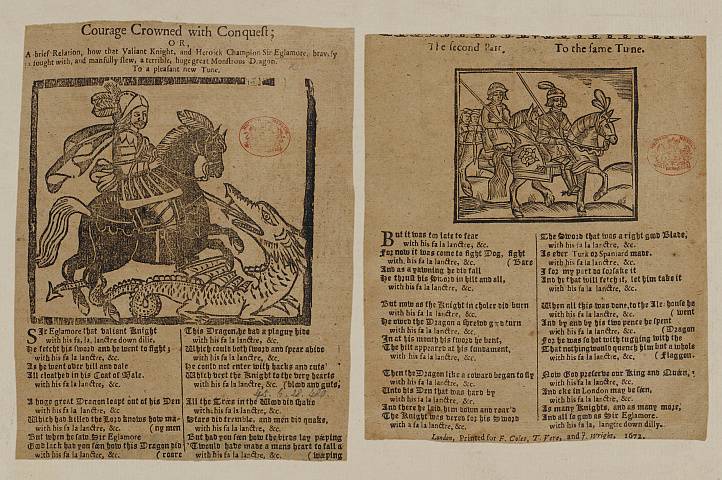 Courage Crowned with Conquest;
OR,
A brief Relation, how that Valiant Knight, and Heroick Champion Sir Eglamore, bravely
fought with, and manfully slew, a terrible, huge great Monstrous Dragon.
To a pleasant new Tune.
SIr Eglamore that valiant Knight
with his fa, la, lanctre down dilie,
He fetcht his sword and he went to fight;
with his fa la lanctre, &c.
As he went over hill and dale
with his fa la lanctre, &c.
All cloathed in his Coat of Male.
with his fa la lanctre, &c.
A huge great Dragon leapt out of his Den
with his fa la lanctre, &c.
Which had killed the Lord knows how ma-
with his fa la lanctre, &c. (ny men
But when he saw Sir Eglamore
with his fa la lanctre, &c.
Good lack had you seen how this Dragon did
with his fa la lanctre, &c. (roare
This Dragon he had a plaguy hide
with his fa la lanctre, &c.
Which could both sword and spear abide
with his fa la lanctre, &c.
He could not enter with hacks and cuts
with his fa la lanctre, &c.
Which vext the Knight to the very hearts
with his fa la lanctre, &c. (blood and guts,
All the Trees in the Wood did shake
with his fa la lanctre, &c.
Stars did tremble, and men did quake,
with his fa la lanctre, &c.
But had you seen how the birds lay peeping
with his fa la lanctre, &c.
'Twould have made a mans heart to fall a
with his fa la lanctre, &c. (weeping
The second Part, To the same Tune.
But it was too late to fear
with his fa la lanctre, &c.
For now it was come to fight Dog, fight
with his fa la lanctre, &c. (Bare
And as a yawning he did fall
with his fa la lanctre, &c.
He thrust his Sword in hilt and all,
with his fa la lanctre, &c.
But now as the Knight in choler did burn
with his fa la lanctre, &c.
He owed the Dragon a shrewd good turn
with his fa la lanctre, &c.
In at his mouth his sword he bent,
with his fa la lanctre, &c.
The hilt appeared at his fundament,
with his fa la lanctre, &c.
Then the Dragon like a coward began to fly
with his fa la lanctre, &c.
Unto his Den that was hard by
with his fa la lanctre, &c.
And there he laid him down and roar'd
with his fa la lanctre, &c.
The Knight was vexed for his Sword
with a fa la lanctre, &c.
The Sword that was a right good Blade,
with his fa la lanctre, &c.
As ever Turk or Spaniard made.
with his fa la lanctre, &c.
I for my part do forsake it
with his fa la lanctre, &c.
And he that will fetch it, let him take it
with his fa la lanctre, &c.
When all this was done, to the Ale-house he
with his fa la lanctre, &c. (went
And by and by his two pence he spent
with his fa la lanctre, &c. (Dragon
For he was so hot with tugging with the
with his fa la lanctre, &c.
That nothing would quench him but a whole
with his fa la lanctre, &c. (Flaggon.
Now God preserve our King and Queen,
with his fa la lanctre, &c.
And eke in London may be seen,
with his fa la lanctre, &c.
As many Knights, and as many more,
with his fa la lanctre, &c.
And all so good as Sir Eglemore.
with his fa la, langtre down dilly.
London, Printed for F. Coles, T. Vere, and J. Wright. 1672.